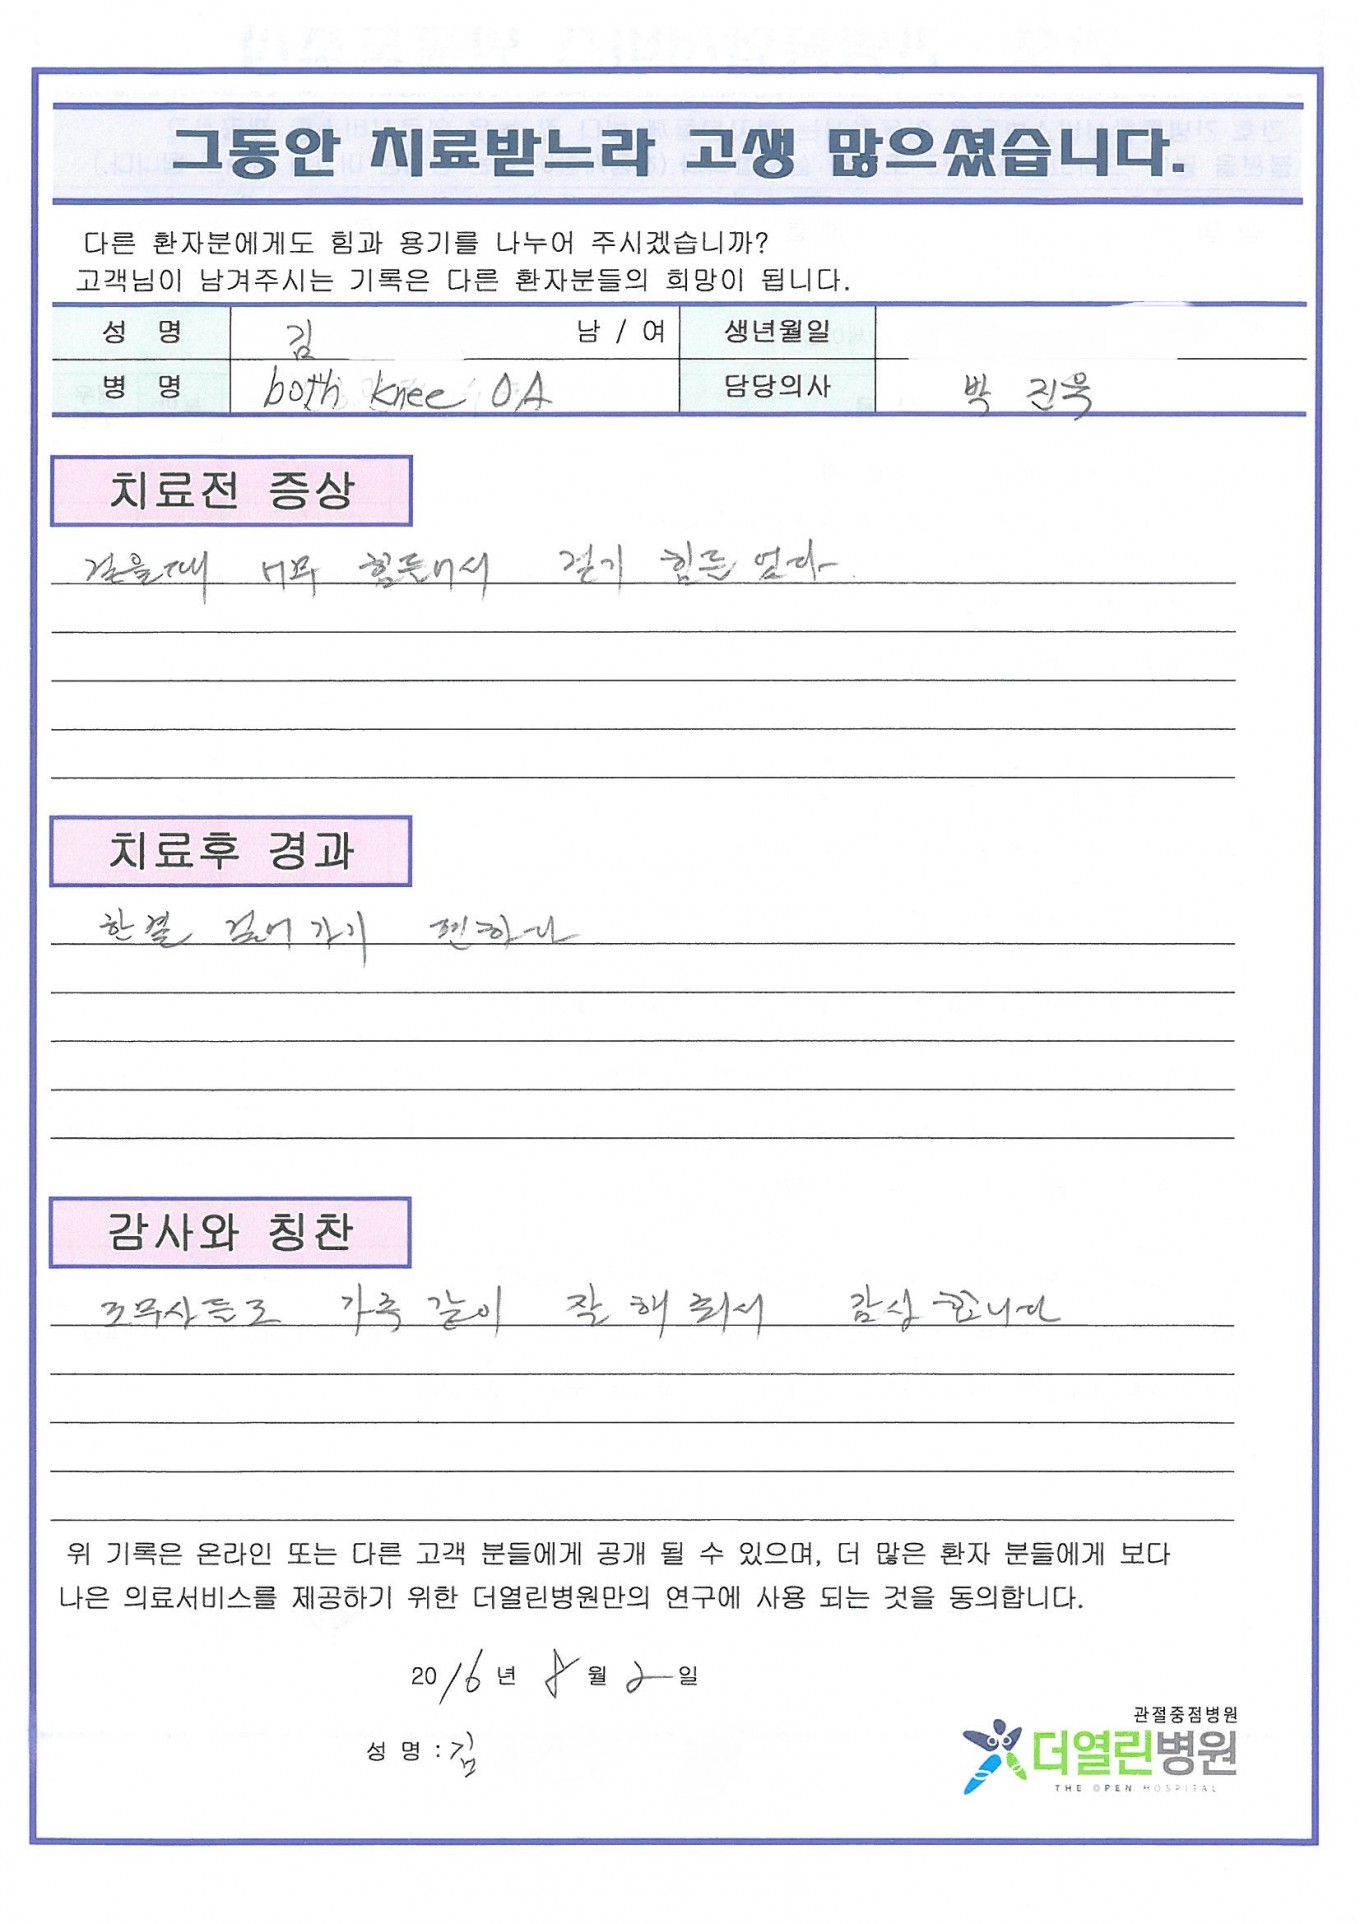 그동안 치료받느라 고생 많으셨습니다.
다른 환자분에게도 힘과 용기를 나누어 주시겠습니까?
고객님이 남겨주시는 기록은 다른 환자분들의 희망이 됩니다.
성 명 김 남 / 여 생년월일
병 명 both knee OA 담당의사 박 진욱
치료전 증상
걸을때 너무 힘들어서 걷기 힘든 었다.
치료후 경과
한결 걸어가기 편하다
감사와 칭찬
조무사들도 가족 같이 잘 해 줘서 감상 합니다
위 기록은 온라인 또는 다른 고객 분들에게 공개 될 수 있으며, 더 많은 환자 분들에게 보다
나은 의료서비스를 제공하기 위한 더열린병원만의 연구에 사용 되는 것을 동의합니다.
2016년 8월 2일
성 명 : 김
관절중점병원
더열린병원
THE OPEN HOSPITAL